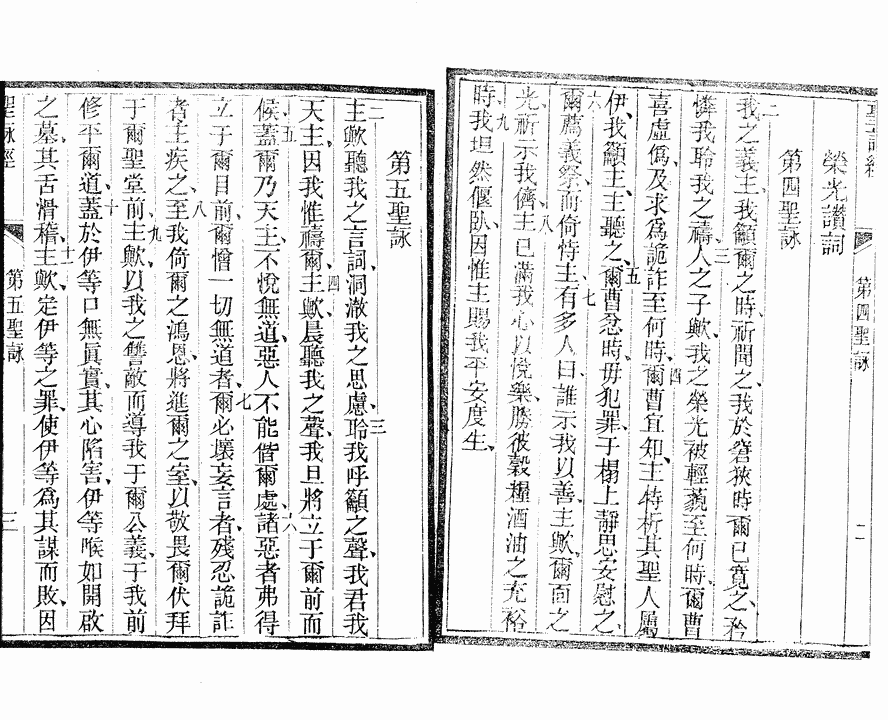 聖詠經
第四聖詠
二
榮光讚詞
第四聖詠
二我之義主、我籲爾之時、祈聞之、我於窘狹時、爾已寬之、矜
憐我、聆我之禱、三人之子歟、我之榮光、被輕藐至何時、爾曹
喜虛僞、及求爲詭詐至何時、四爾曹宜知、主特析其聖人、屬
伊、我籲主、主聽之、五爾曹忿時、毋犯罪、于榻上靜思安慰之、
六爾薦義祭、而倚恃主、七有多人曰、誰示我以善、主歟、爾面之
光、祈示我儕、八主已滿我心以悅樂、勝彼穀糧酒油之充裕
時、九我坦然偃臥、因惟主賜我平安度生、
第五聖詠
二主歟、聽我之言詞、洞澈我之思慮、三聆我呼籲之聲、我君我
天主、因我惟禱爾、四主歟、晨聽我之聲、我旦將立于爾前而
候、五蓋爾乃天主、不悅無道、惡人不能偕爾處、六諸惡者弗得
立于爾目前、爾憎一切無道者、七爾必壞妄言者、殘忍詭詐
者、主疾之、八至我倚爾之鴻恩、將進爾之室、以敬畏爾、伏拜
于爾聖堂前、九主歟、以我之讐敵、而導我于爾公義、于我前
修平爾道、十蓋於伊等口無眞實、其心陷害、伊等喉如開啟
之墓、其舌滑稽、十一主歟、定伊等之罪、使伊等爲其謀而敗、因
聖詠經
第五聖詠
三